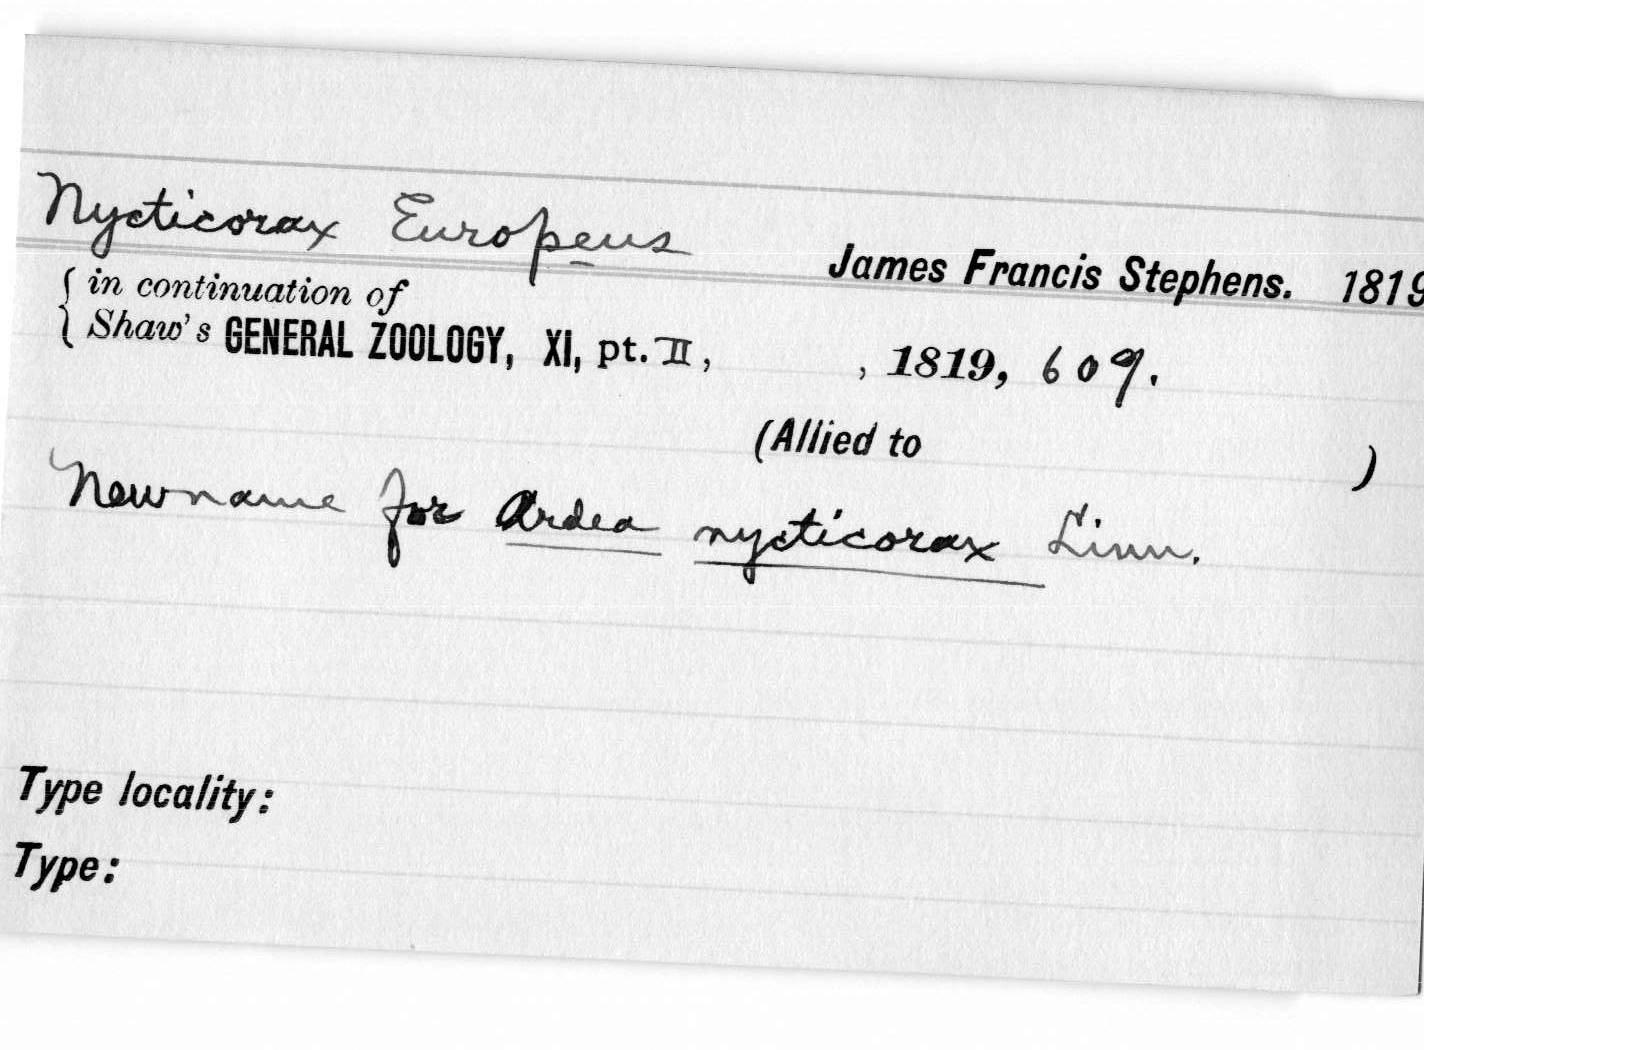 Nycticorax Europeus
James Francis Stephens. 1819
{ in continuation of
{ Shaw's GENERAL ZOOLOGY, XI, pt. II, , 1819, 609.
(Allied to )
New name for Ardea nycticorax Linn.
Type locality:
Type: